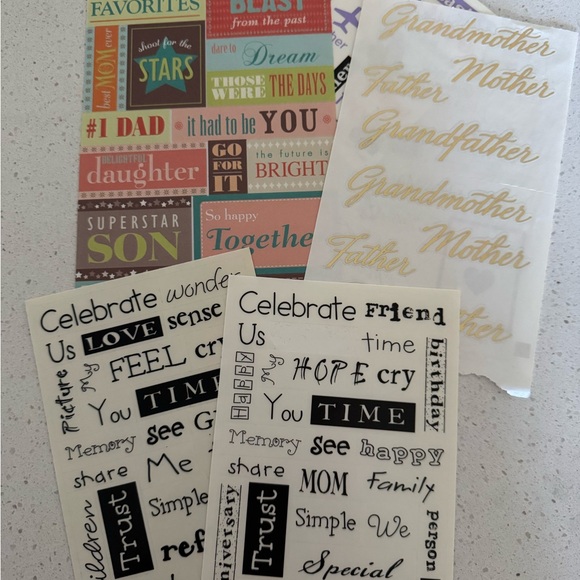 FAVORITES
BLAST
from the past
best MOM ever
shoot for the
STARS
dare to Dream
THOSE WERE THE DAYS
#1 DAD
it had to be YOU
DELIGHTFUL
daughter
GO FOR IT
the future is
BRIGHT
SUPERSTAR
SON
So happy
Together
Grandmother
Mother
Father
Grandfather
Grandmother
Mother
Father
Celebrate wonder
Us LOVE sense
Picture My FEEL cry
You TIME
Memory see
share Me
Trust Simple
Celebrate Friend
Us time
HAPPY My HOPE cry
birthday
You TIME
Memory see happy
share MOM Family
Trust Simple We
person
Special